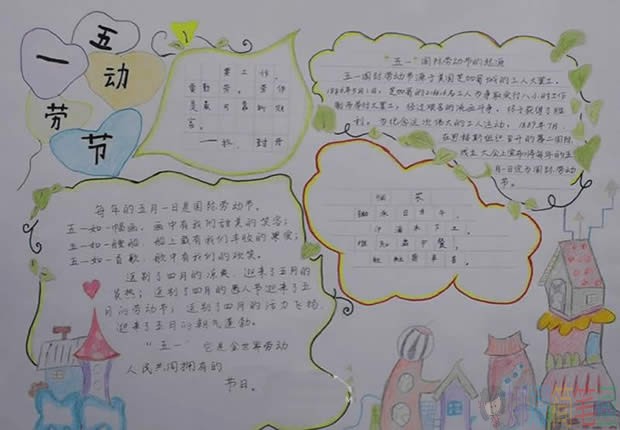 五一
劳动节
要工作，
要勤劳。劳作
是最可靠的财
富。
——拉·封丹
“五一”国际劳动节的起源
五一国际劳动节源于美国芝加哥城的工人大罢工。
1886年5月1日，芝加哥的216000工人为争取实行八小时工作
制而举行大罢工，经过艰苦的流血斗争，终于获得了胜
利。为纪念这次伟大的工人运动，1889年7月
在恩格斯组织召开的第二国际
成立大会上宣布将每年的五
月一日定为国际劳动
节。
悯农
锄禾日当午，
汗滴禾下土。
谁知盘中餐，
粒粒皆辛苦。
每年的五月一日是国际劳动节。
五一如一幅画，画中有我们甜美的笑容；
五一如一艘船，船上载有我们丰收的果实；
五一如一首歌，歌中有我们的欢笑。
送别了四月的凉爽，迎来了五月的
炎热；送别了四月的愚人节迎来了五
月的劳动节；送别了四月的活力飞扬
迎来了五月的朝气蓬勃。
“五一”它是全世界劳动
人民共同拥有的
节日。